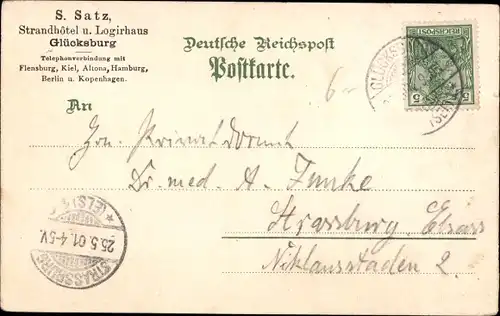 S. Satz,
Strandhôtel u. Logirhaus
Glücksburg
Telephonverbindung mit
Flensburg, Kiel, Altona, Hamburg,
Berlin u. Kopenhagen.
Deutsche Reichspost
Postkarte.
5 REICHSPOST 5
GLÜCKSB
6-
An
Hrn. Privatdozent
Dr. med. A. Funke
Strassburg Elsass
Niklausstaden 2.
STRASSBURG
25.5.01.4-5V.
* (ELS)